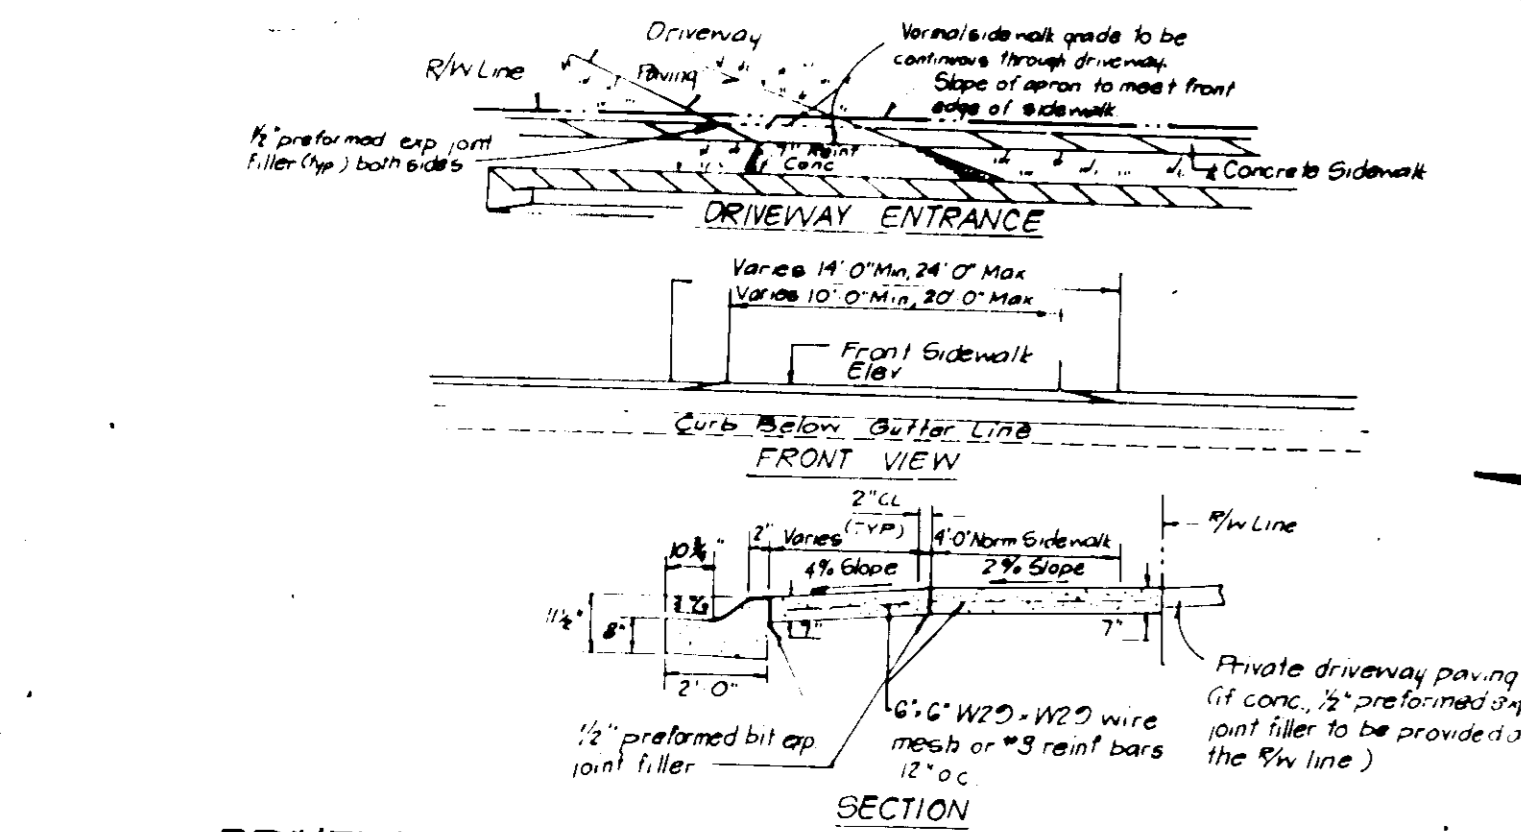 Driveway
Paving
R/W Line
Normal sidewalk grade to be
continuous through driveway.
Slope of apron to meet front
edge of sidewalk
1/2" preformed exp joint
filler (typ) both sides
7" Reint
Conc
Concrete Sidewalk
DRIVEWAY ENTRANCE
Varies 14'0" Min, 24'0" Max
Varies 10'0" Min, 20'0" Max
Front Sidewalk
Elev
Curb Below Gutter Line
FRONT VIEW
2" CL
(TYP)
2" Varies
4'0" Norm Sidewalk
R/W Line
4% Slope
2% Slope
11 1/2"
8"
7"
7"
2'0"
1/2" preformed bit exp.
joint filler
6"x6" W29 x W29 wire
mesh or #3 reinf bars
12" o c.
Private driveway paving
(if conc., 1/2" preformed
joint filler to be provided
the R/W line)
SECTION